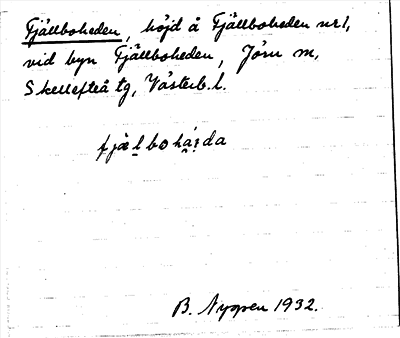 Fjällboheden, höjd å Fjällboheden nr 1,
vid byn Fjällboheden, Jörn m,
Skellefteå tg, Västerb. l.
B. Nygren 1932.